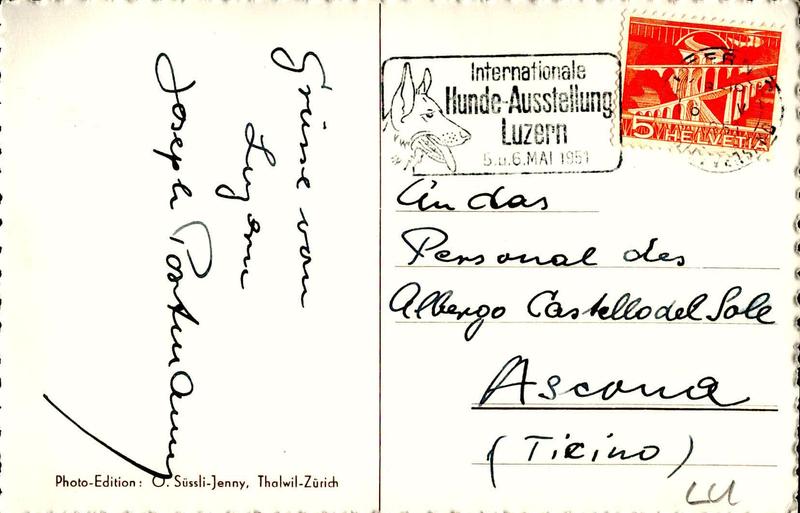 Grüsse von
Luzern
Joseph Portmann
Photo-Edition: O. Süssli-Jenny, Thalwil-Zürich
Internationale
Hunde-Ausstellung
Luzern
5.u.6.MAI 1951
5 HELVETIA
An das
Personal des
Albergo Castello del Sole
Ascona
(Ticino)
LU